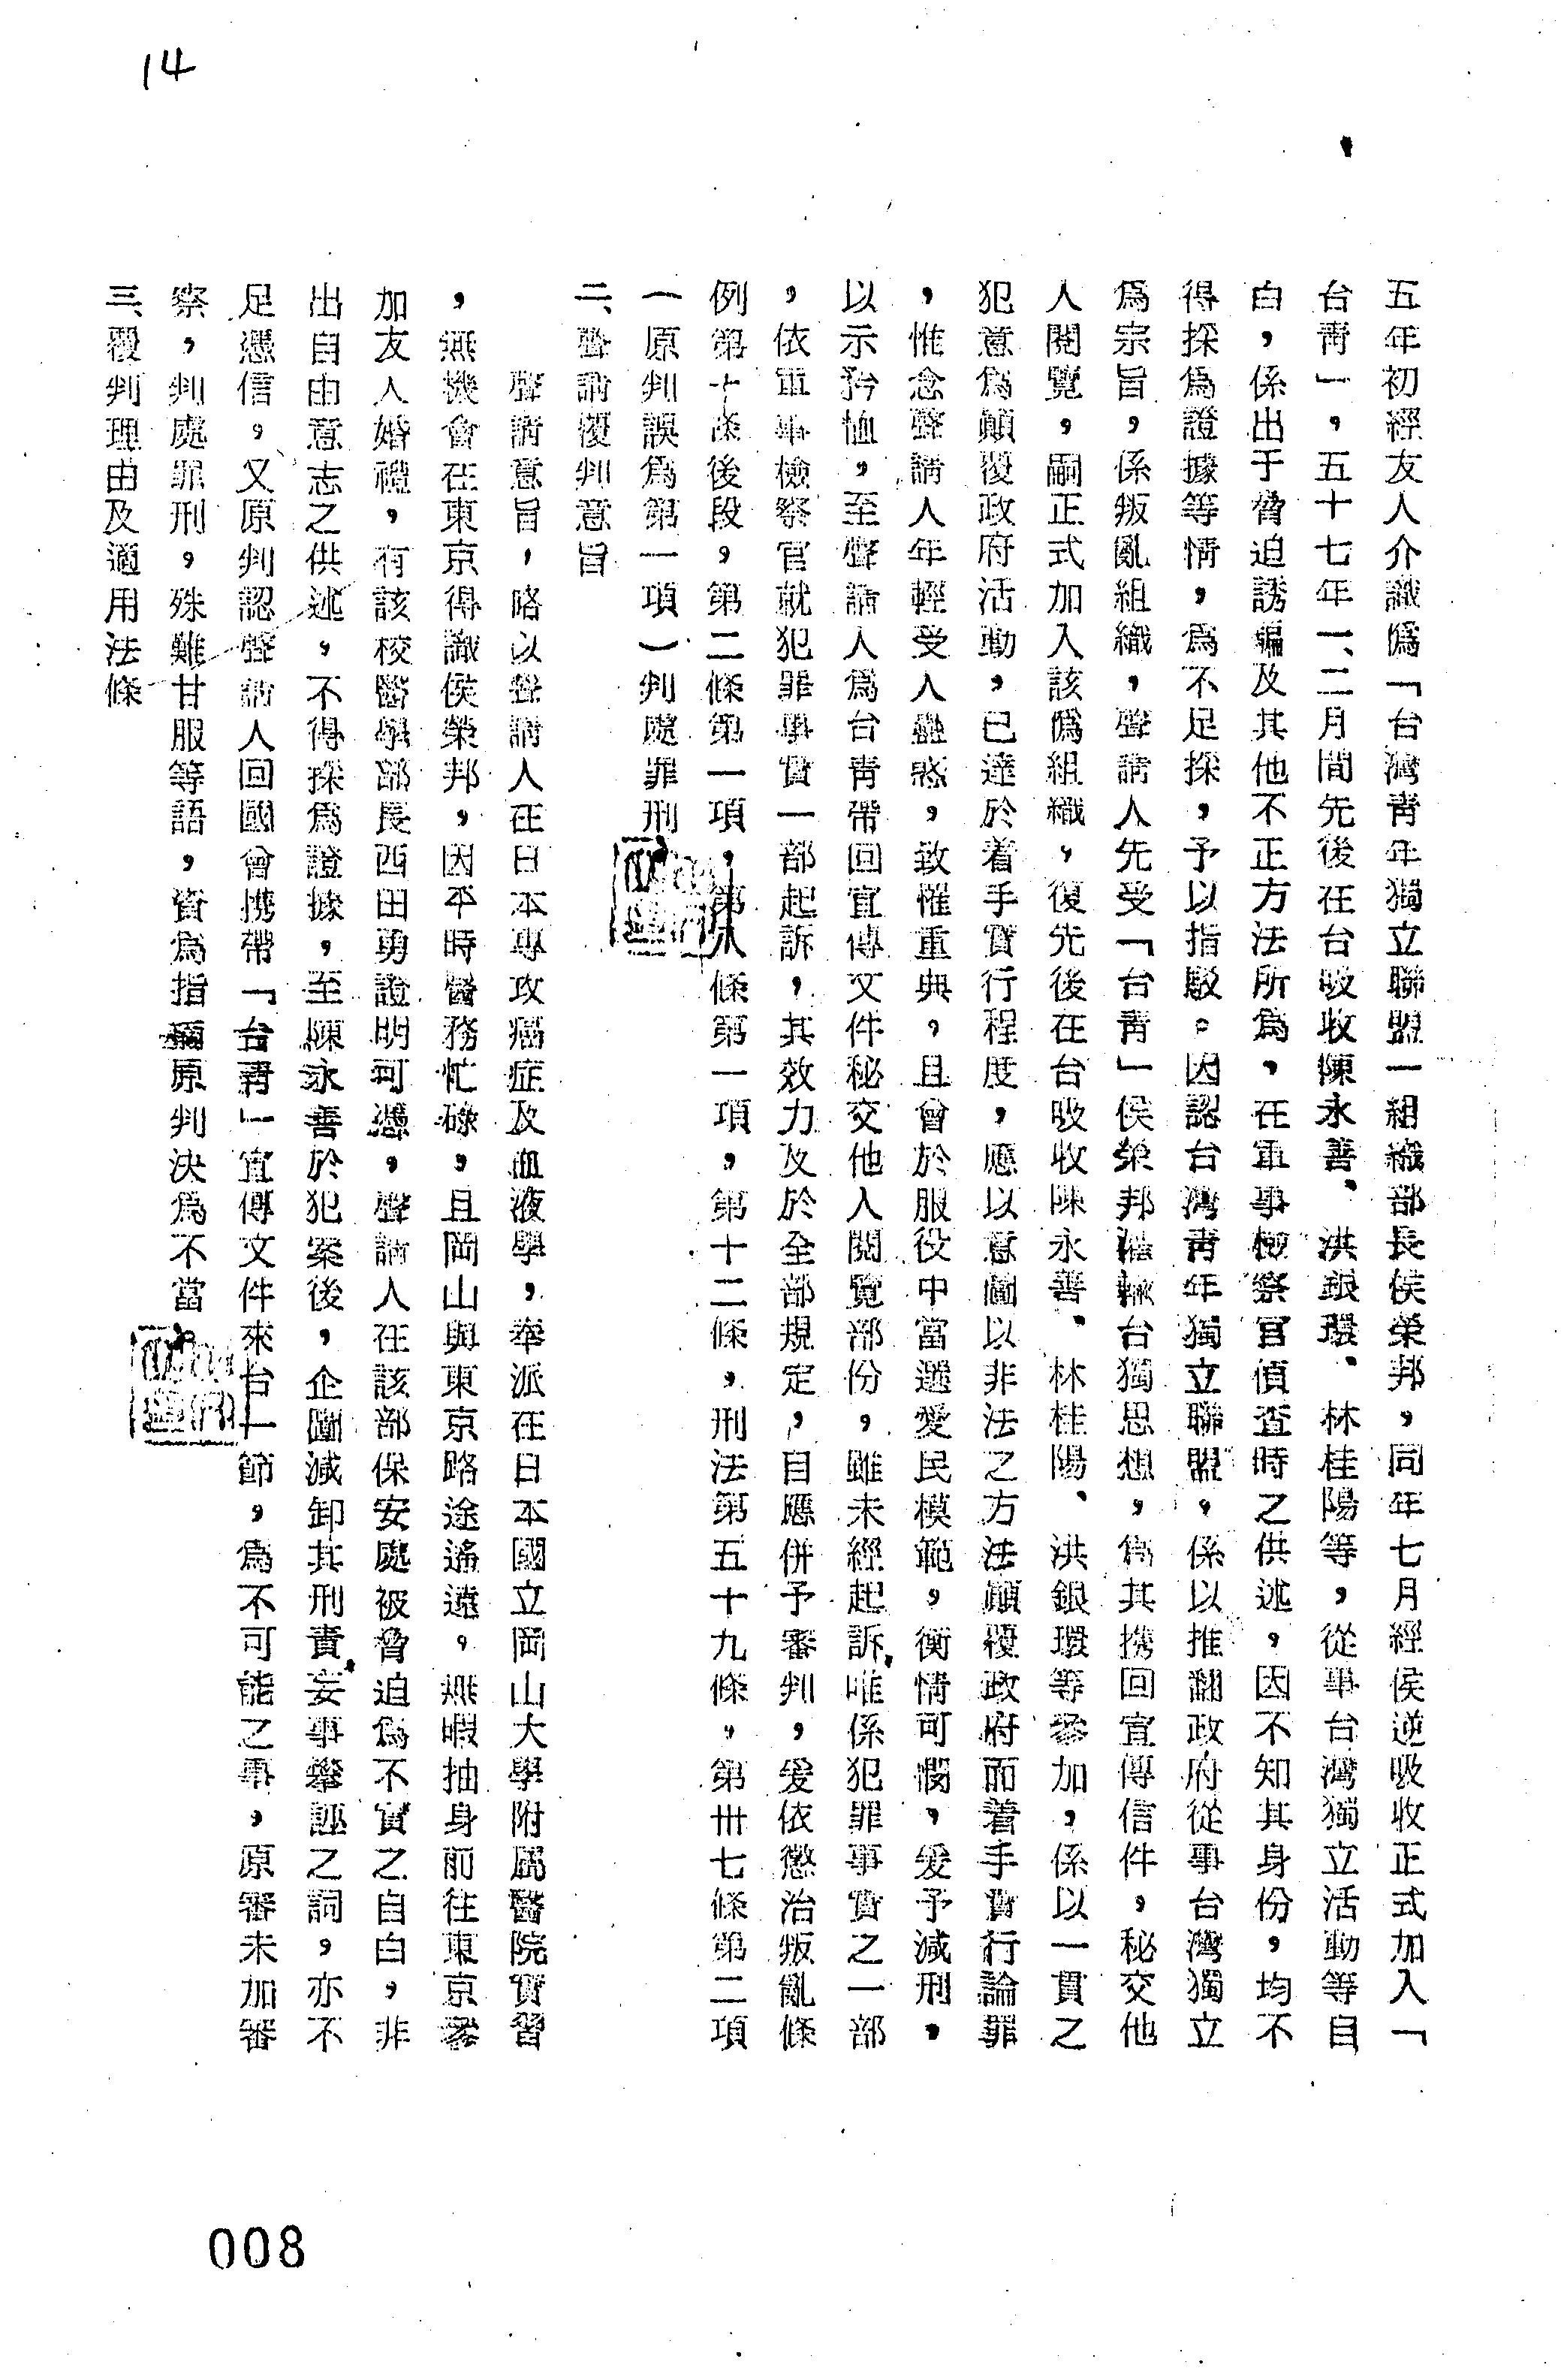 14
五年初經友人介識僞「台灣青年獨立聯盟一組織部長侯榮邦，同年七月經侯逆吸收正式加入「
台青」，五十七年一、二月間先後在台吸收陳永善、洪銀環、林桂陽等，從事台灣獨立活動等自
白，係出于脅迫誘騙及其他不正方法所爲，在軍事檢察官偵查時之供述，因不知其身份，均不
得採爲證據等情，爲不足採，予以指駁。因認台灣青年獨立聯盟，係以推翻政府從事台灣獨立
爲宗旨，係叛亂組織，聲請人先受「台青」侯榮邦灌輸台獨思想，爲其携回宣傳信件，秘交他
人閱覽，嗣正式加入該僞組織，復先後在台吸收陳永善、林桂陽、洪銀環等參加，係以一貫之
犯意爲顛覆政府活動，已達於着手實行程度，應以意圖以非法之方法顛覆政府而着手實行論罪
，惟念聲請人年輕受人蠱惑，致罹重典，且曾於服役中當選愛民模範，衡情可憫，爰予減刑，
以示矜恤，至聲請人爲台青帶回宣傳文件秘交他人閱覽部份，雖未經起訴，唯係犯罪事實之一部
，依軍事檢察官就犯罪事實一部起訴，其效力及於全部規定，自應併予審判，爰依懲治叛亂條
例第十條後段，第二條第一項，第八條第一項，第十二條，刑法第五十九條，第卅七條第二項
（原判誤爲第一項）判處罪刑
二、聲請覆判意旨
聲請意旨，略以聲請人在日本專攻癌症及血液學，奉派在日本國立岡山大學附屬醫院實習
，無機會在東京得識侯榮邦，因平時醫務忙碌，且岡山與東京路途遙遠，無暇抽身前往東京參
加友人婚禮，有該校醫學部長西田勇證明可憑，聲請人在該部保安處被脅迫爲不實之自白，非
出自由意志之供述，不得採爲證據，至陳永善於犯案後，企圖減卸其刑責，妄事攀誣之詞，亦不
足憑信，又原判認聲請人回國曾携帶「台青」宣傳文件來台一節，爲不可能之事，原審未加審
察，判處罪刑，殊難甘服等語，資爲指摘原判決爲不當
三、覆判理由及適用法條
008